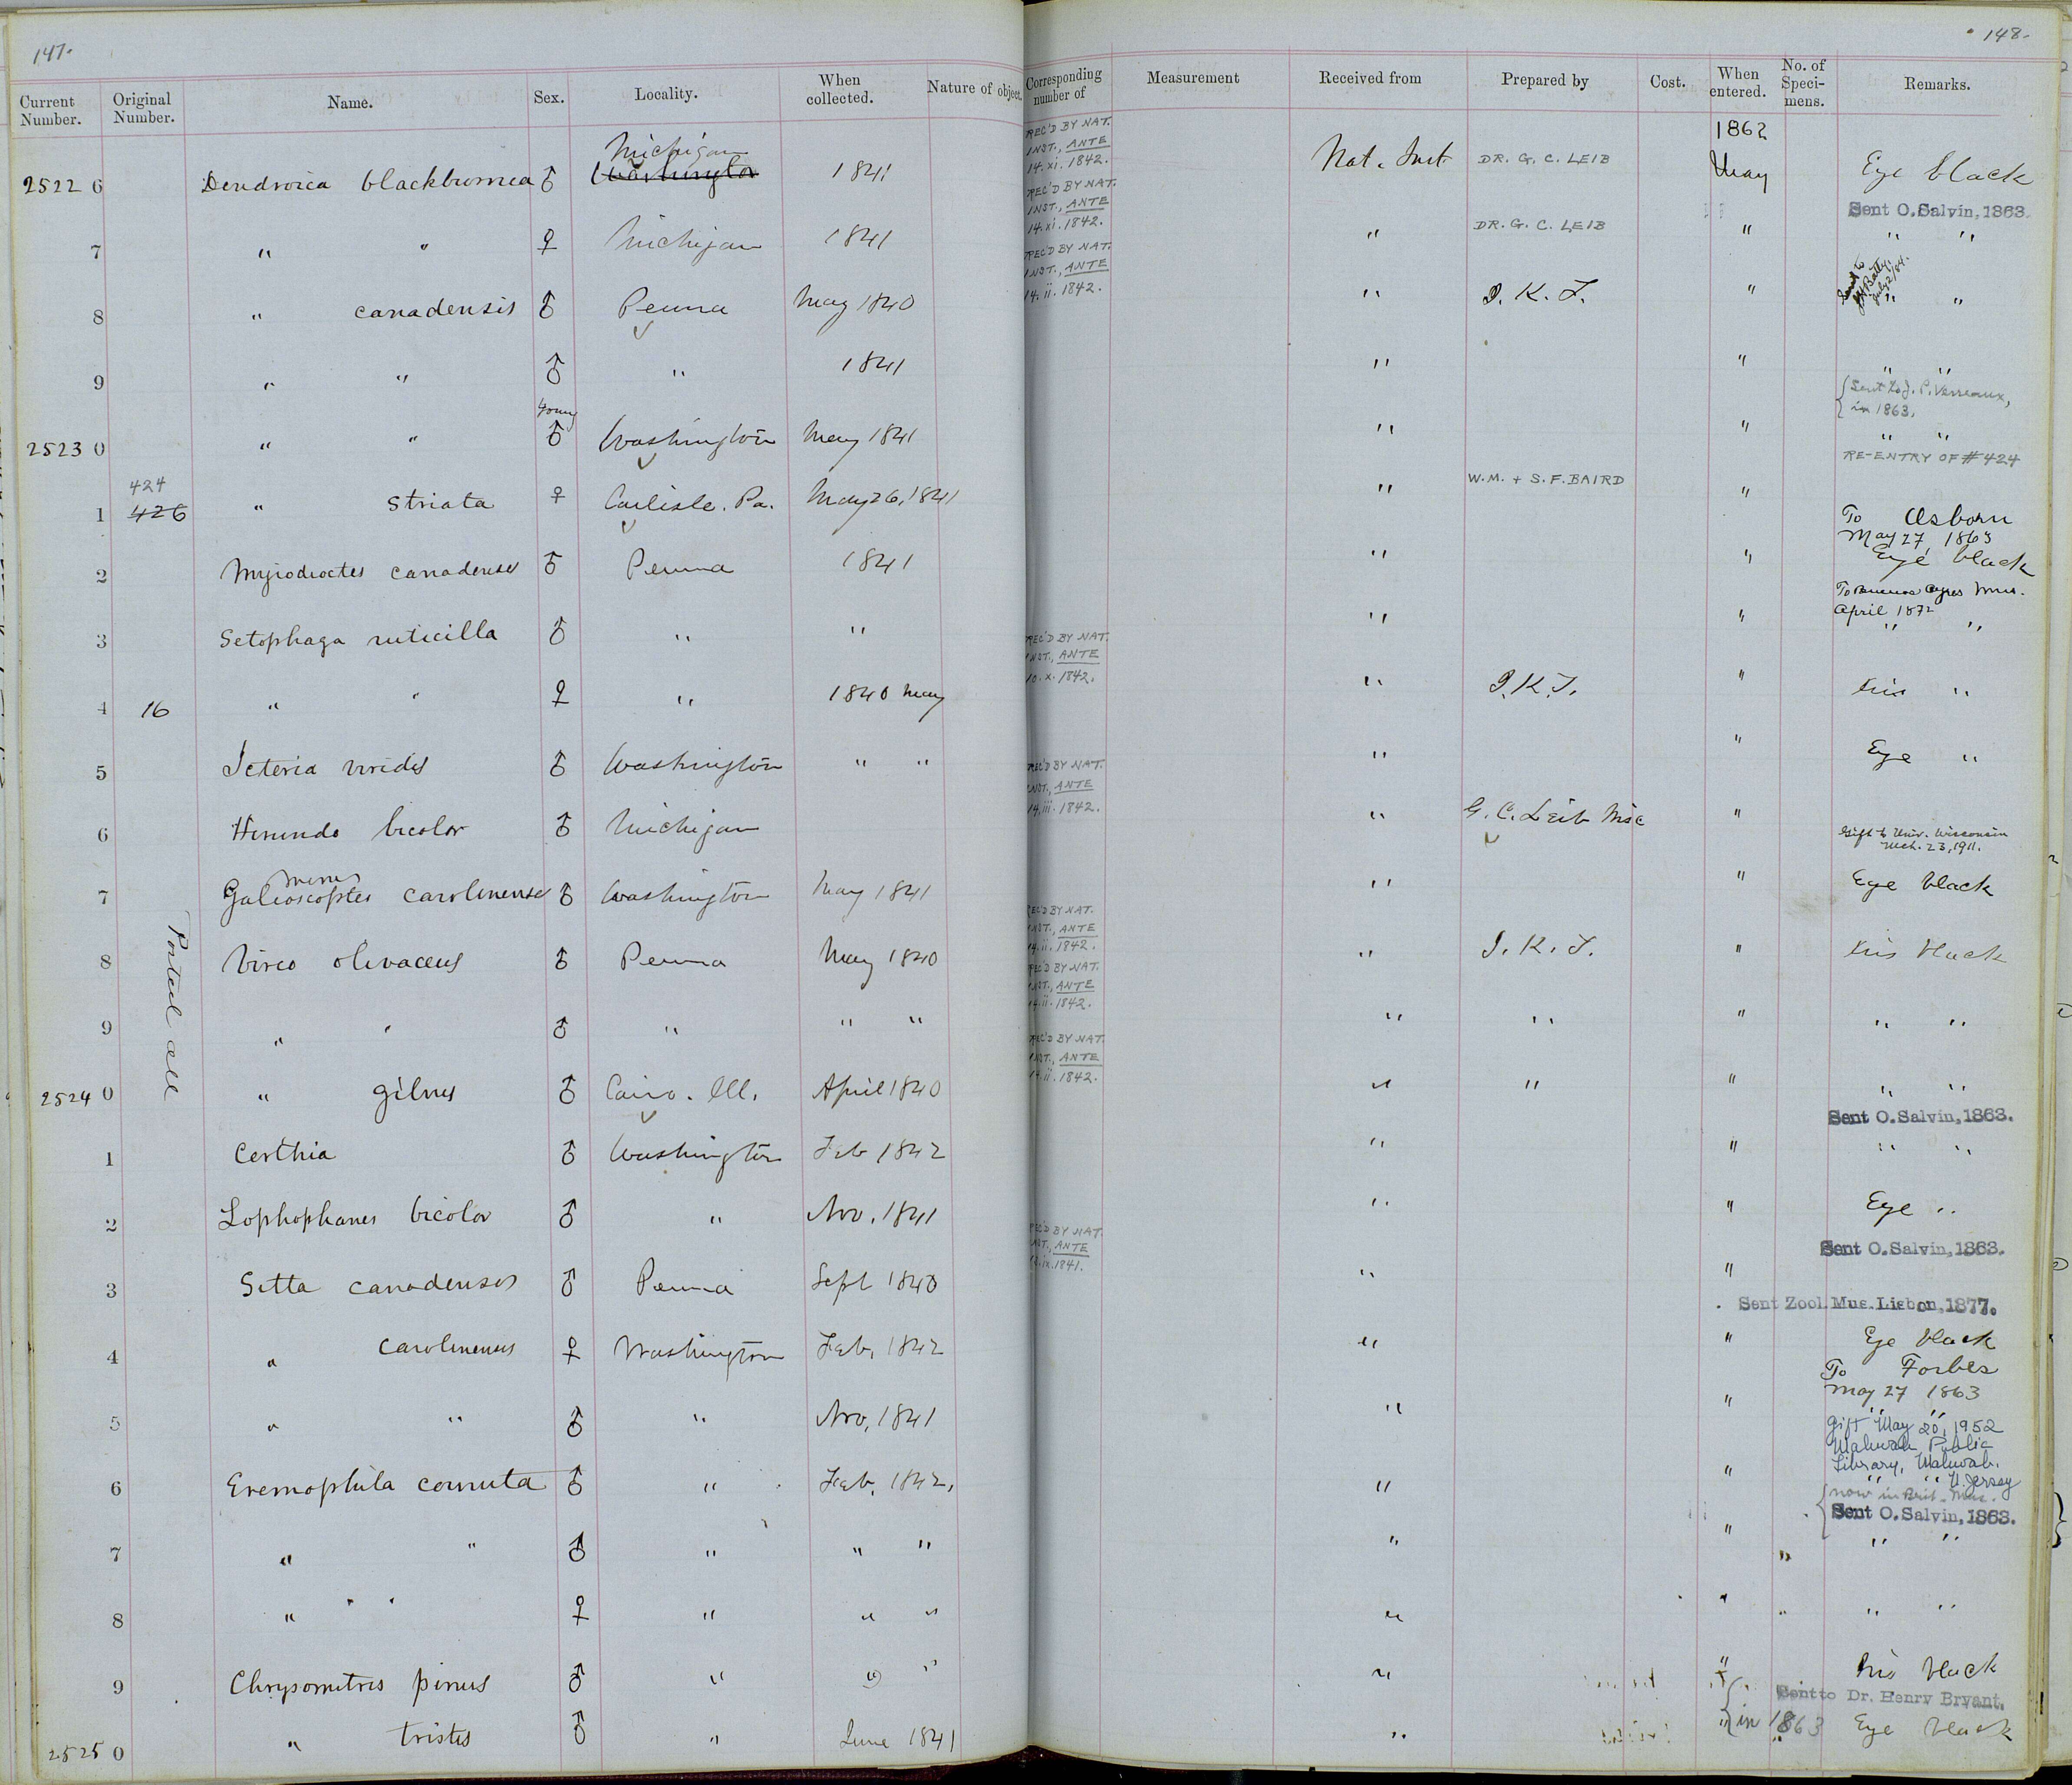 147.
148.
Current Number. Original Number. Name. Sex. Locality. When collected. Nature of object. Corresponding number of Measurement Received from Prepared by Cost. When entered. No. of Specimens. Remarks.
Michigan REC'D BY NAT. INST., ANTE 14.xi.1842. 1862
25226 Dendroica blackburnea ♂ Washington 1841 Nat. Inst. DR. G. C. LEIB May Eye black
Sent O. Salvin, 1863.
7 " " ♀ Michigan 1841 REC'D BY NAT. INST., ANTE 14.xi.1842. " DR. G. C. LEIB " " "
Sent to Batty, July 2/84.
8 " canadensis ♂ Penna May 1840 REC'D BY NAT. INST., ANTE 14.ii.1842. " J. K. T. " " "
9 " " ♂ " 1841 " " " "
{Sent to J. P. Verreaux, in 1863.
25230 " " young ♂ Washington May 1841 " " " "
RE-ENTRY OF #424
1 424 426 " striata ♀ Carlisle. Pa. May 26, 1841 " W.M. + S.F. BAIRD "
To Osborn
May 27, 1863
2 Myiodioctes canadensis ♂ Penna 1841 " " Eye black
To Buenos Ayres Mus.
April 1872
3 Setophaga ruticilla ♂ " " REC'D BY NAT. INST., ANTE 10.x.1842. " " " "
4 16 " " ♀ " 1840 May " J. K. T. " Iris "
5 Icteria viridis ♂ Washington " " REC'D BY NAT. INST., ANTE 14.iii.1842. " " Eye "
6 Hirundo bicolor ♂ Michigan " G. C. Leib "
Gift to Univ. Wisconsin
Mch. 23, 1911.
mimus
7 Galeoscoptes carolinensis ♂ Washington May 1841 " " Eye black
8 Vireo olivaceus ♂ Penna May 1840 REC'D BY NAT. INST., ANTE 14.ii.1842. " J. K. T. " Iris black
9 " " ♂ " " " REC'D BY NAT. INST., ANTE 14.ii.1842. " " " " "
Posted all
25240 " gilvus ♂ Cairo. Ill. April 1840 REC'D BY NAT. INST., ANTE 14.ii.1842. " " " " "
Sent O. Salvin, 1863.
1 Certhia ♂ Washington Feb 1842 " " " "
2 Lophophanes bicolor ♂ " Nov. 1841 " " Eye "
Sent O. Salvin, 1863.
3 Sitta canadensis ♂ Penna Sept 1840 REC'D BY NAT. INST., ANTE ix.1841. " "
Sent Zool. Mus. Lisbon, 1877.
4 " carolinensis ♀ Washington Feb, 1842 " " Eye black
To Forbes
May 27 1863
5 " " ♂ " Nov, 1841 " " " "
Gift May 20, 1952
Mahwah Public
Library, Mahwah.
N. Jersey
6 Eremophila cornuta ♂ " Feb, 1842, " " " "
{now in Brit. Mus.
Sent O. Salvin, 1863.
7 " " ♂ " " " " " " " "
8 " " " ♀ " " " " " " " "
9 Chrysomitris pinus ♂ " " " " " Iris black
{Sent to Dr. Henry Bryant.
in 1863
25250 " tristis ♂ " June 1841 " " " Eye black